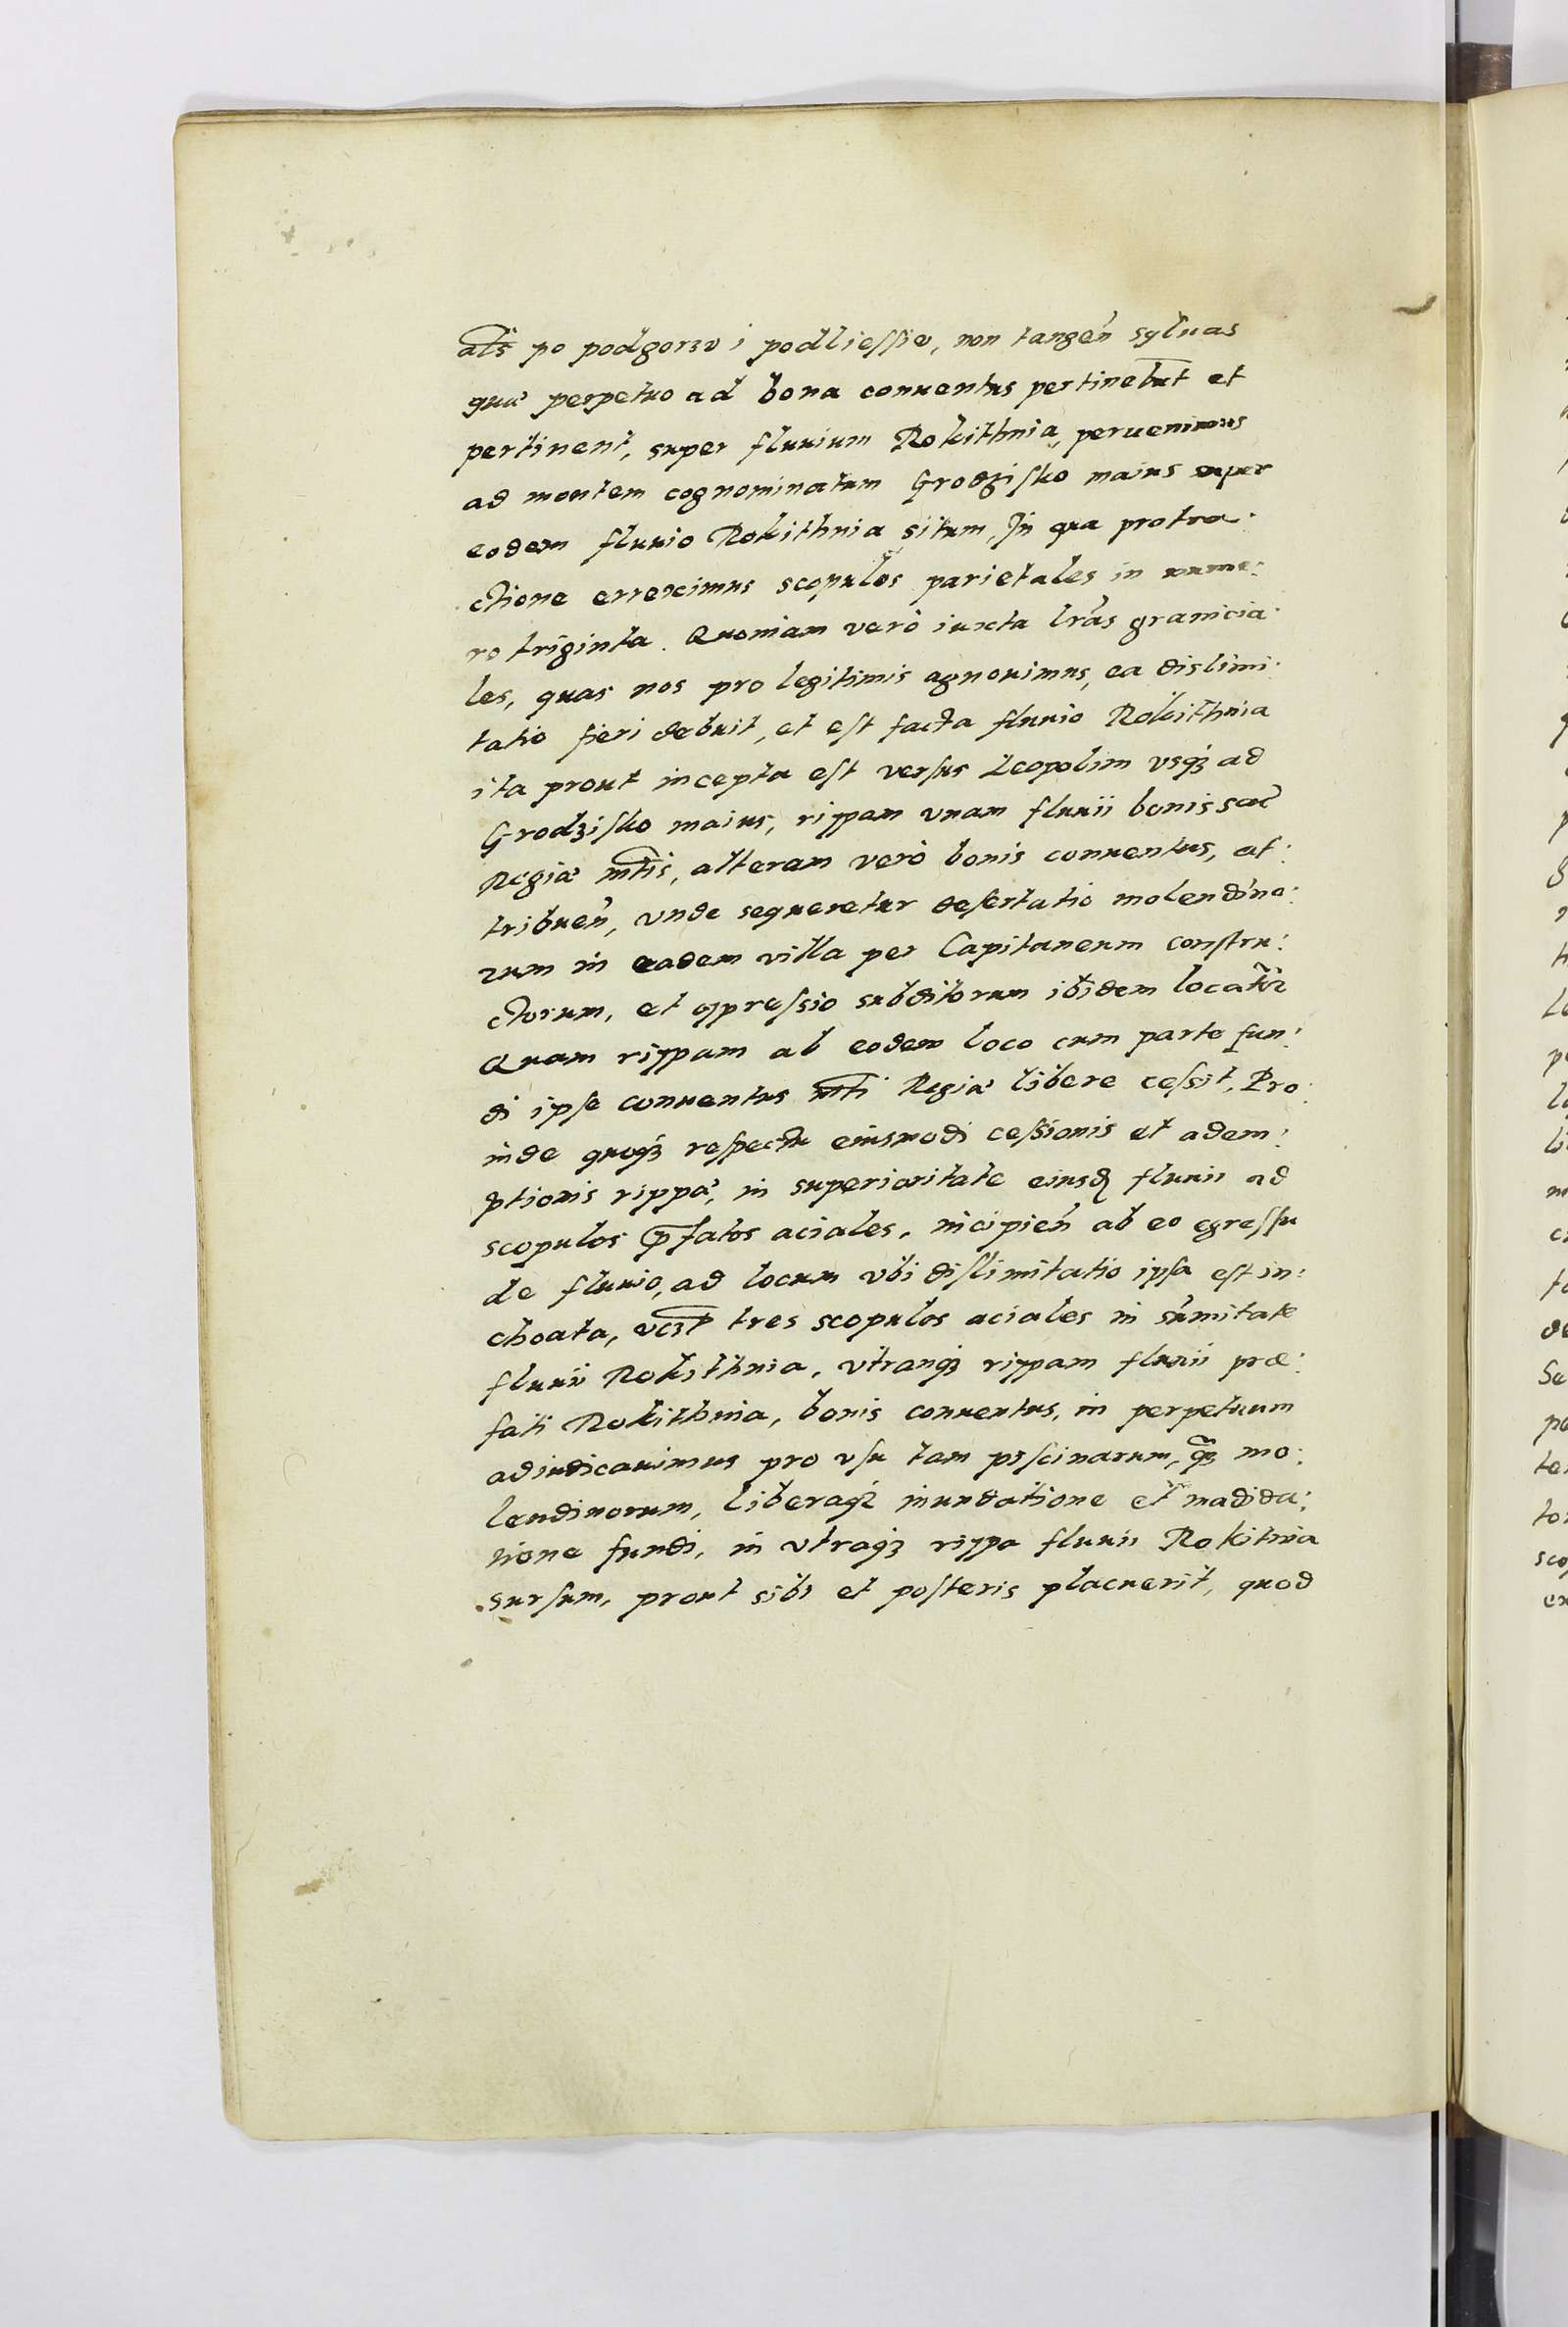 als̄ po podgorzu i podliessiu, non tangen̄ syluas
quæ perpetuo ad bona conuentus pertinebāt et
pertinent, super fluuium Rokithnia, peruenimus
ad montem cognominatum Grodzisko maius super
eodem fluuio Rokithnia situm, In qua protra:
ctione erreximus scopulos parietales in nume:
ro triginta. Quoniam verò iuxta lr̄as granicia:
les, quas nos pro legitimis agnouimus, ea dislimi:
tatio fieri debuit, et est facta fluuio Rokithnia
ita prout incepta est versus Leopolim vsqꝫ ad
Grodzisko maius, rippam vnam fluuii bonis sac̄
Regiæ mt̄is, alteram verò bonis conuentus, at:
tribuen̄, vnde sequeretur desertatio molendino:
rum in eadem villa per Capitaneum constru:
ctorum, et oppressio subditorum ibidem locator̄
Quam rippam ab eodem loco cum parte fun:
di ipse conuentus mt̄i Regiæ libere cessit, Pro:
inde quoqꝫ respectu eiusmodi cessionis et adem:
ptionis rippæ, in superioritate eiusd̄ fluuii ad
scopulos p̄fatos aciales, incipien̄ ab eo egressu
de fluuio, ad locum vbi dislimitatio ipsa est in:
choata, vcꝫt̄ tres scopulos aciales in sum̄itate
fluuii Rokithnia, vtranqꝫ rippam fluuii præ:
fati Rokithnia, bonis conuentus, in perpetuum
adiudicauimus pro vsu tam piscinarum, q̄ꝫ mo:
lendinorum, liberaqꝫ inundatione et madida:
tione fundi, in vtraqꝫ rippa fluuii Rokitnia
sursum, prout sibi et posteris placuerit, quod